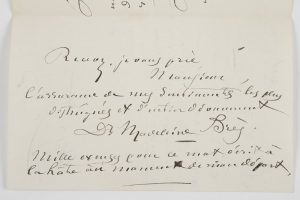 Recevez, je vous prie
Monsieur
l'assurance de mes sentiments les plus
distingués et d'entier dévouement
Dr Madeleine Brès
Mille excuses pour ce mot écrit à
la hâte au moment de mon départ